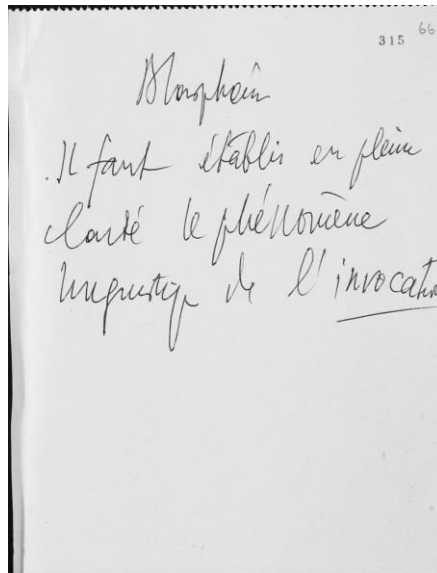 315 66
Blasphèm
. Il faut établir en pleine
clarté le phénomène
linguistiqu de l'invocation